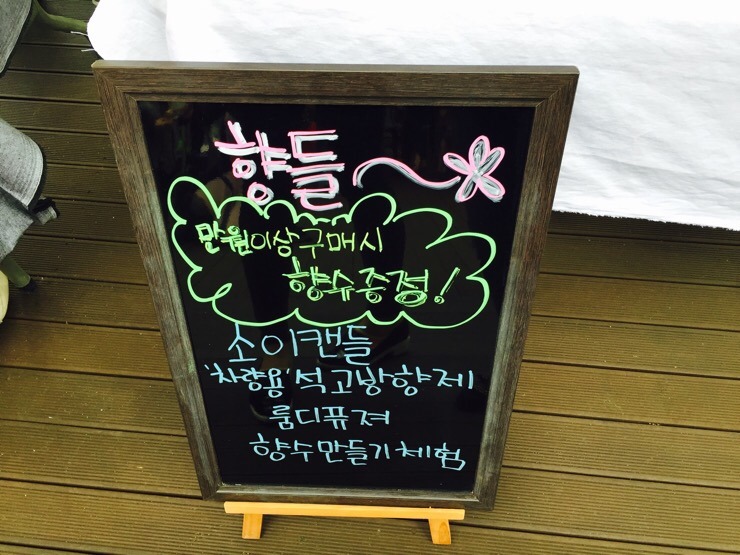 향들
만원이상구매시
향수증정!
소이캔들
'차량용'석고방향제
룸디퓨져
향수만들기체험